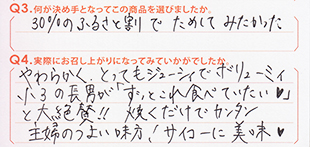 Q3.何が決め手となってこの商品を選びましたか。
30%のふるさと割でためしてみたかった
Q4.実際にお召し上がりになってみていかがでしたか。
やわらかく、とってもジューシーでボリューミィ
小3の長男が「ずっとこれ食べていたい♥」
と大絶賛!! 焼くだけでカンタン
主婦のつよい味方！サイコーに美味♥